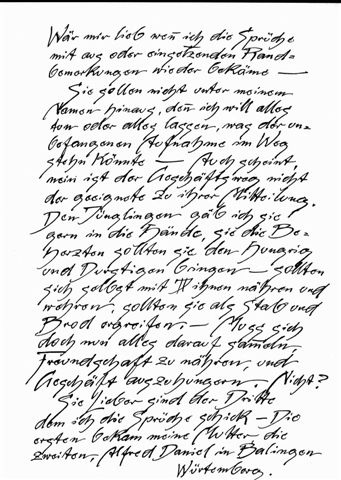 Wär mir lieb weñ ich die Sprüche
mit aus oder eingetzenden Rand-
bemerkungen wieder bekäme —
Sie sollen nicht unter meinem
Namen hinaus, deñ ich will alles
tun oder alles lassen, was der un-
befangenen Aufnahme im Weg
stehn könnte — Auch scheint,
mein ist der Geschäftsweg nicht
der geeignete zu ihrer Mitteilung.
Den Jünglingen gäb ich sie
gern in die Hände, sie die Be-
herzten sollten sie den Hungrig
und Durstigen bringen — sollten
sich selbst mit ihnen nähren und
wehren, sollten sie als Stab und
Brod ergreifen. — Muss sich
doch nun alles darauf sameln
Freundschaft zu nähren, und
Geschäft auszuhungern. Nicht?
Sie Lieber sind der Dritte
dem ich die Sprüche schick — Die
ersten bekam meine Mutter die
zweiten, Alfred Daniel in Balingen
Würtemberg.